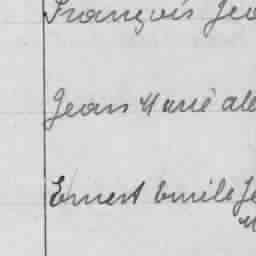 François Je
Jean Marie ale
Ernest Emile Je